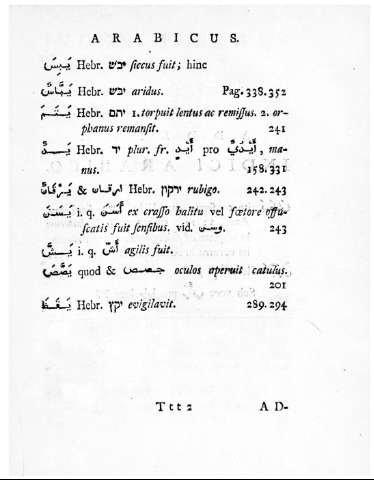 ARABICUS.
يَبِسَ Hebr. יבש siccus fuit; hinc
Hebr. יבש aridus. Pag. 338.352
يَتَمَ Hebr. יתם 1. torpuit lentus ac remissus. 2. or-
phanus remansit. 241
يَدٌ Hebr. יד plur. fr. أَيْدٍ pro أَيْدُيٌ, ma-
nus. 158.331
يَرْقَانٌ & ارقان Hebr. ירקון rubigo. 242.243
يَسَنَ i. q. أَسَنَ ex crasso halitu vel fœtore offu-
scatis fuit sensibus. vid. وسن 243
i. q. أَشّ agilis fuit.
يَصَّصَ quod & جصص oculos aperuit catulus.
201
يَقَظَ Hebr. יקץ evigilavit. 289.294
Tttt 2 AD-